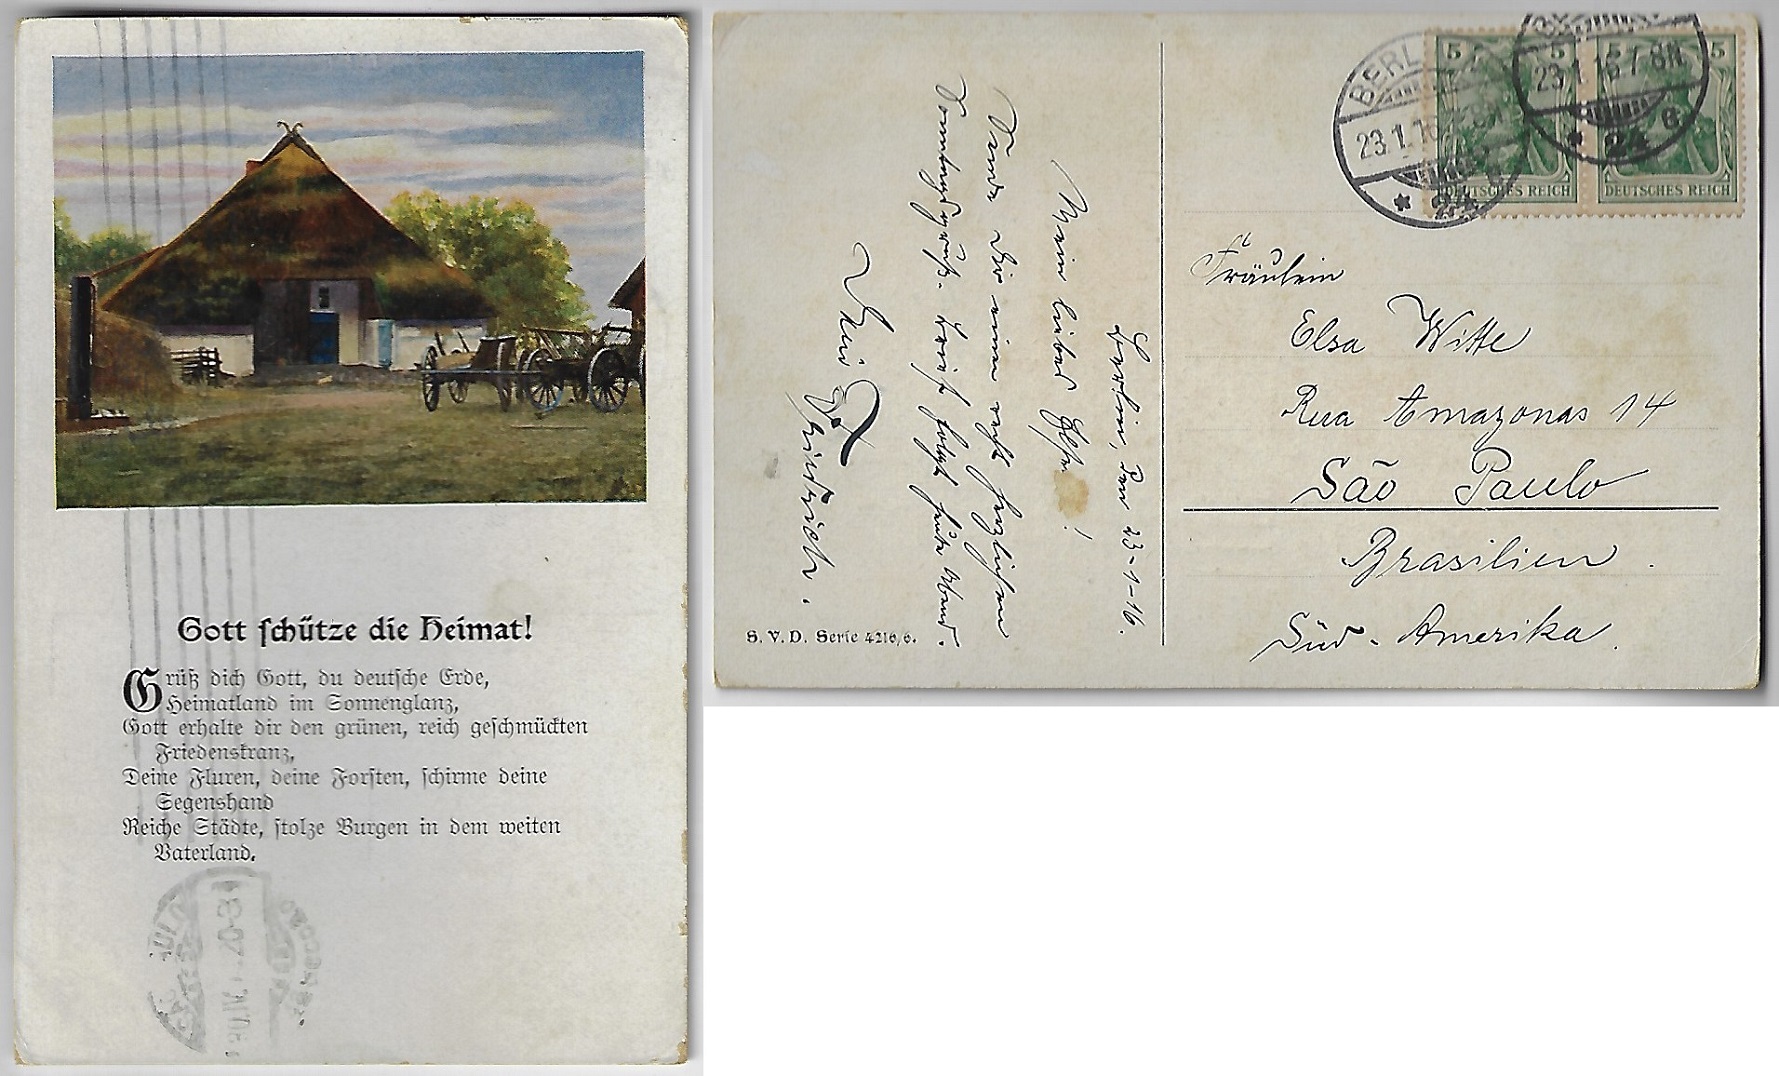 Gott schütze die Heimat!
Grüß dich Gott, du deutsche Erde,
Heimatland im Sonnenglanz,
Gott erhalte dir den grünen, reich geschmückten
Friedenskranz,
Deine Fluren, deine Forsten, schirme deine
Segenshand
Reiche Städte, stolze Burgen in dem weiten
Vaterland.
Berlin, den 23-1-16.
Mein liebes Else!
Sende Dir einen recht herzlichen
Sonntagsgruß. Brief folgt heute Abend.
Dein
Friedrich.
S. V. D. Serie 4216/6.
BERLIN
23.1.16
* 24 c
23.1.16.7-8N
* 24 c
5 5
DEUTSCHES REICH
5 5
DEUTSCHES REICH
Fräulein
Elsa Witte
Rua Amazonas 14
São Paulo
Brasilien.
Süd-Amerika.